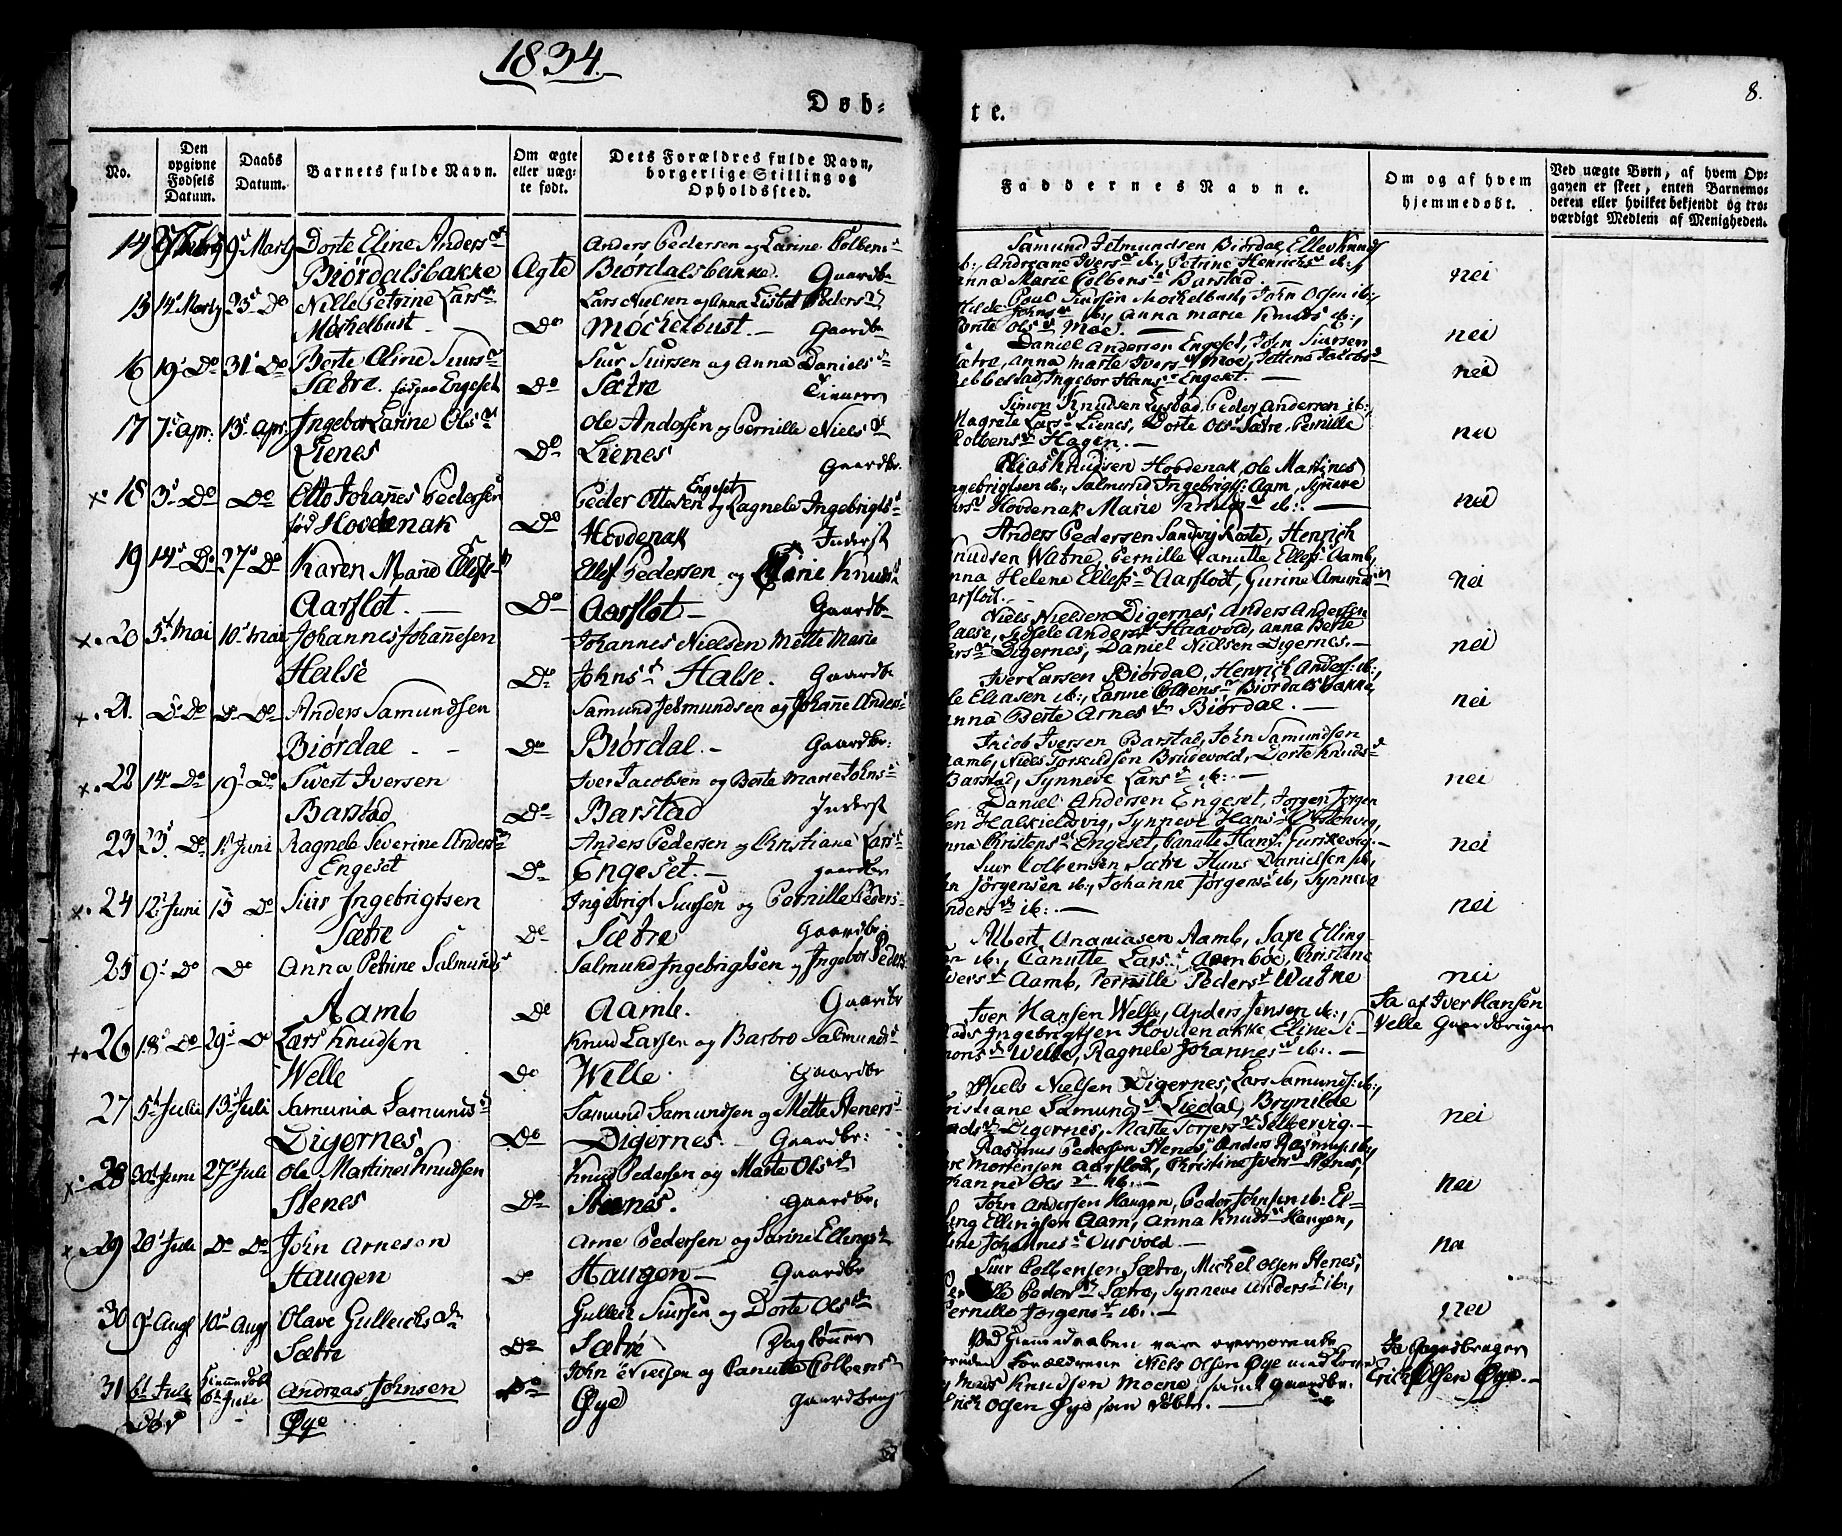 1834.
Døb-
te.
8.
No.
Den opgivne Fødsels Datum.
Daabs Datum.
Barnets fulde Navn.
Om ægte eller uægte født.
Dets Forældres fulde Navn, borgerlige Stilling og Opholdssted.
Faddernes Navne.
Om og af hvem hjemmedøbt.
Ved uægte Børn, af hvem Opgaven er skeet, enten Barnemoderen eller hvilket bekjendt og troværdigt Medlem af Menigheden.
14 9de Marts Dorte Eline Anders
Biørdalsbakke Ægte
Anders Pedersen og Larine Colbens
Biørdalsbakke. Gaardbr
Samund Jetmundsen Biørdal, Ellev Knuds
ib:, Andreane Ivers ib:, Petrine Henrichs ib:,
Anna Marie Colbens Barstad. —
nei
15 14 Marts 23 Do Nille Petrine Lars
Møchelbust Do
Lars Nielsen og Anna Lisbet Peders
Møchelbust. — Gaardbr
Poul Siursen Mochelbust, John Olsen ib:,
Hilde Johns ib:, Anna Marie Knuds ib:,
Dorte Ols Moe. —
nei
16 19 Do 31 Do Berte Oline Siurs
Sætre. Engeset Do
Siur Siursen og Anna Daniels
Sætre
Daniel Andersen Engeset, John Siursen
Sætre, Anna Marte Ivers Moe, Jettena Jacobs
Ebbestad, Ingebor Hans Engeset. —
nei
17 7 Apr: 13 Apr: Ingebor Larine Ols
Lienes Do
Ole Andersen og Pernille Niels
Lienes Gaardbr.
Simon Knudsen Lystad, Peder Andersen ib:,
Magrete Lars Lienes, Dorte Ols Sætre, Pernille
Colbens Hagen. —
nei
18 3 Do Do Otto Johannes Pedersen
fød Hovdenak Do
Peder Ottesen Engeset og Ragnele Ingebrigts
Hovdenak Inderst
Elias Knudsen Hovdenak, Ole Martines
Ingebrigtsen ib:, Salmund Ingebrigts: Aam, Synneve
Lars Hovdenak Marie Knuds ib:. —
nei
19 14 Do 27 Do Karen Marie Ellefs
Aarflot. — Do
Ellef Pedersen og Marie Knuds
Aarflot — Gaardbr
Anders Pedersen Sandvig Rote, Henrich
Knudsen Watne, Pernille Canutte Ellefs Aamb,
Anna Helene Ellefs Aarflot, Gurine Amunds
Aarflot. —
nei
20 5 Mai 10 Mai Johannes Johannesen
Halse Do
Johannes Nielsen Mette Marie
Johns Halse. Gaardbr
Niels Nielsen Digernes, Anders Andersen
Halse, Anders Haavold, Anna Berte
Lars Digernes, Daniel Nielsen Digernes. —
nei
21. Do Do Anders Samundsen
Biørdal. Do
Samund Jetmundsen og Johanne Anders
Biørdal. — Gaardbr:
Iver Larsen Biørdal, Henrich Anders: ib:,
Ole Eliasen ib:, Larine Colbens Biørdalsbakke,
Anna Berte Arnes Biørdal. —
nei
22 14 Do 19 Do Siwert Iversen
Barstad Do
Iver Jacobsen og Berte Marie Johns
Barstad Inderst
Jacob Iversen Barstad, John Samundsen
Aamb, Niels Torkildsen Brudevold, Dorte Knuds
Barstad, Synneve Lars ib:. —
nei
23 23 Do 1 Juni Ragnele Severine Anders
Engeset Do
Anders Pedersen og Christiane Lars
Engeset. — Gaardbr
Daniel Andersen Engeset, Jørgen Jørgen
sen Halkieldsvig, Synneve Hans Ørstenvig,
Anna Christens Engeset, Canutte Hans Furskevig. —
nei
24 12 Juni 15 Do Siur Ingebrigtsen
Sætre Do
Ingebrigt Siursen og Pernille Peders
Sætre Gaardbr.
Siur Colbensen Sætre Hans Danielsen ib,
Jørgensen ib:, Johanne Jørgens ib, Synneve
Anders ib:. —
nei
25 9 Do Do Anna Petrine Salmunds
Aamb Do
Salmund Ingebrigtsen og Ingebor Peders
Aamb. Gaardbr
Albert Ananiasen Aamb, Saxe Elling
sen ib:, Canutte Lars Aamboe, Christine
Ivers Aamb, Pernille Peders Watne
nei
26 18 Do 29 Do Lars Knudsen
Welle Do
Knud Larsen og Barbro Salmunds
Welle. Gaardbr
Iver Hansen Welle, Anders Jensen ib:,
Mads Ingebrigtsen Hovdenakke, Eline Si-
mons Welle, Ragnele Johannes ib:. —
Ja af Iver Hansen
Velle Gaardbruger
27 5 Juli 13 Juli Samunia Samunds
Digernes. Do
Samund Samundsen og Mette Steners
Digernes. Gaardbr:
Niels Nielsen Digernes, Lars Samunds: ib:,
Christiane Samunds Liedal, Brynilde
Mads Digernes, Marte Torgers Selbervig. —
nei
28 30 Juni 27 Juli Ole Martines Knudsen
Stenes Do
Knud Pedersen og Marte Ols
Stenes. Gaardbr.
Rasmus Pedersen Stenes, Anders Rasmus: ib,
Mortensen Aarflod, Christine Ivers Stenes,
Johanne Ols ib. —
nei
29 20 Juli Do Do John Arnesen
Haugen Do
Arne Pedersen og Sarine Ellings
Haugen — Gaardbr
John Andersen Haugen, Peder Johnsen ib: El-
ling Ellingsen Aam, Anna Knuds Haugen,
Line Johannes Ousvold. —
nei
30 9 Aug 10 Aug Olave Gullechs
Sætre Do
Gullech Siursen og Dorte Ols
Sætre Daglønner
Siur Colbensen Sætre, Michel Olsen Stenes,
Peders Sætre, Synneve Anders ib:,
Pernille Jørgens ib:. —
nei
31 6 Juli Hiemmedøbt 6 Juli Andreas Johnsen Do
Død Øye
John Nielsen og Canutte Colbens
Øye Gaardbrug
Ved Hiemmedaaben vare overværende
foruden Forældrene Niels Olsen Øye med Kone
og Mads Knudsen Moene samt Gaardbr.
Erich Olsen Øye som døbte. —
Ja Gaardbruger
Erich Olsen Øye. —